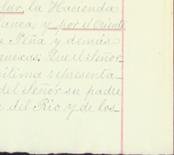 Sur, la Hacienda
anca y por el Oriente
Peña y demás
Que el Señor
itima representa
del Señor su padre
del Rio y de los